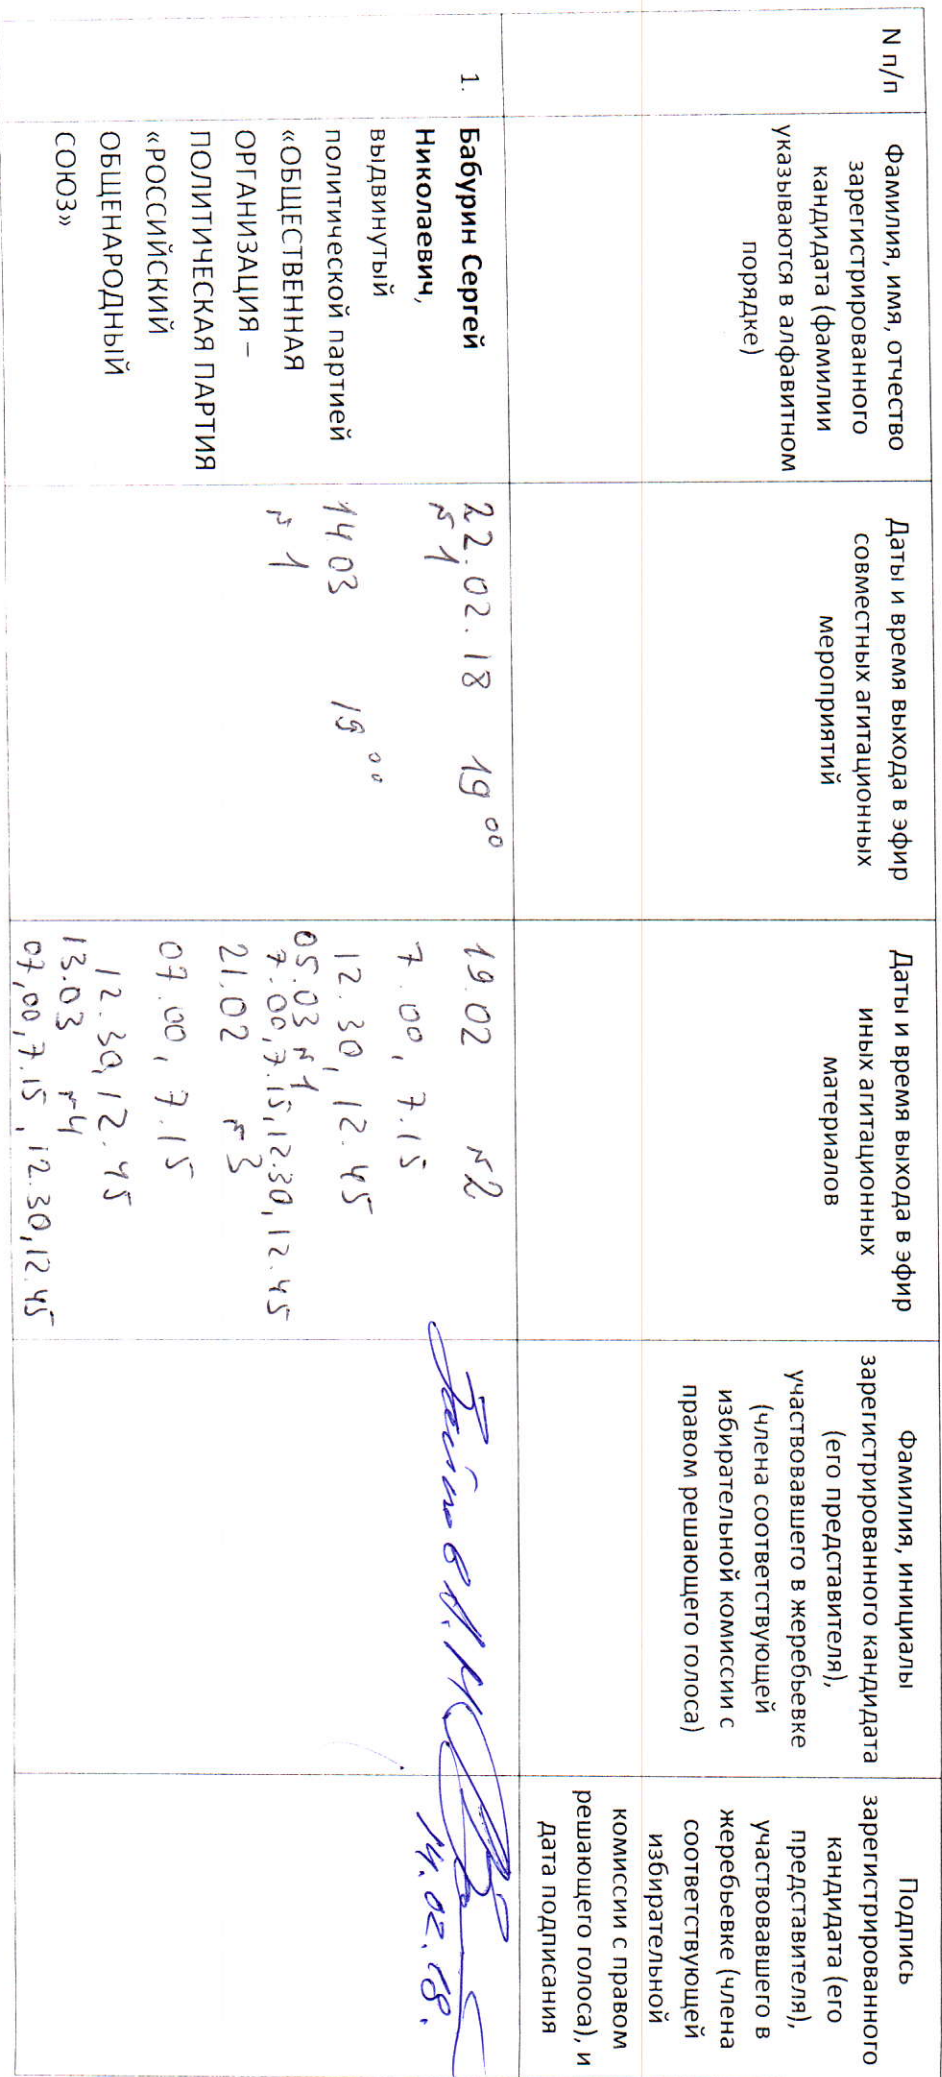 N п/п
Фамилия, имя, отчество
зарегистрированного
кандидата (фамилии
указываются в алфавитном
порядке)
Даты и время выхода в эфир
совместных агитационных
мероприятий
Даты и время выхода в эфир
иных агитационных
материалов
Фамилия, инициалы
зарегистрированного кандидата
(его представителя),
участвовавшего в жеребьевке
(члена соответствующей
избирательной комиссии с
правом решающего голоса)
Подпись
зарегистрированного
кандидата (его
представителя),
участвовавшего в
жеребьевке (члена
соответствующей
избирательной
комиссии с правом
решающего голоса), и
дата подписания
1.
Бабурин Сергей
Николаевич,
выдвинутый
политической партией
«ОБЩЕСТВЕННАЯ
ОРГАНИЗАЦИЯ –
ПОЛИТИЧЕСКАЯ ПАРТИЯ
«РОССИЙСКИЙ
ОБЩЕНАРОДНЫЙ
СОЮЗ»
22.02.18 19 00
N 1
14.03 19 00
N 1
19.02 N2
7.00, 7.15
12.30, 12.45
05.03 N1
7.00, 7.15, 12.30, 12.45
21.02 N3
07.00, 7.15
12.30, 12.45
13.03 N4
07,00, 7.15, 12.30, 12.45
14.02.18.